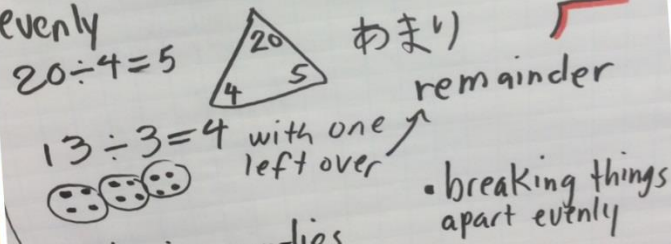 evenly
20÷4=5
20
4 5
あまり
remainder
13÷3=4 with one
left over
• breaking things
apart evenly